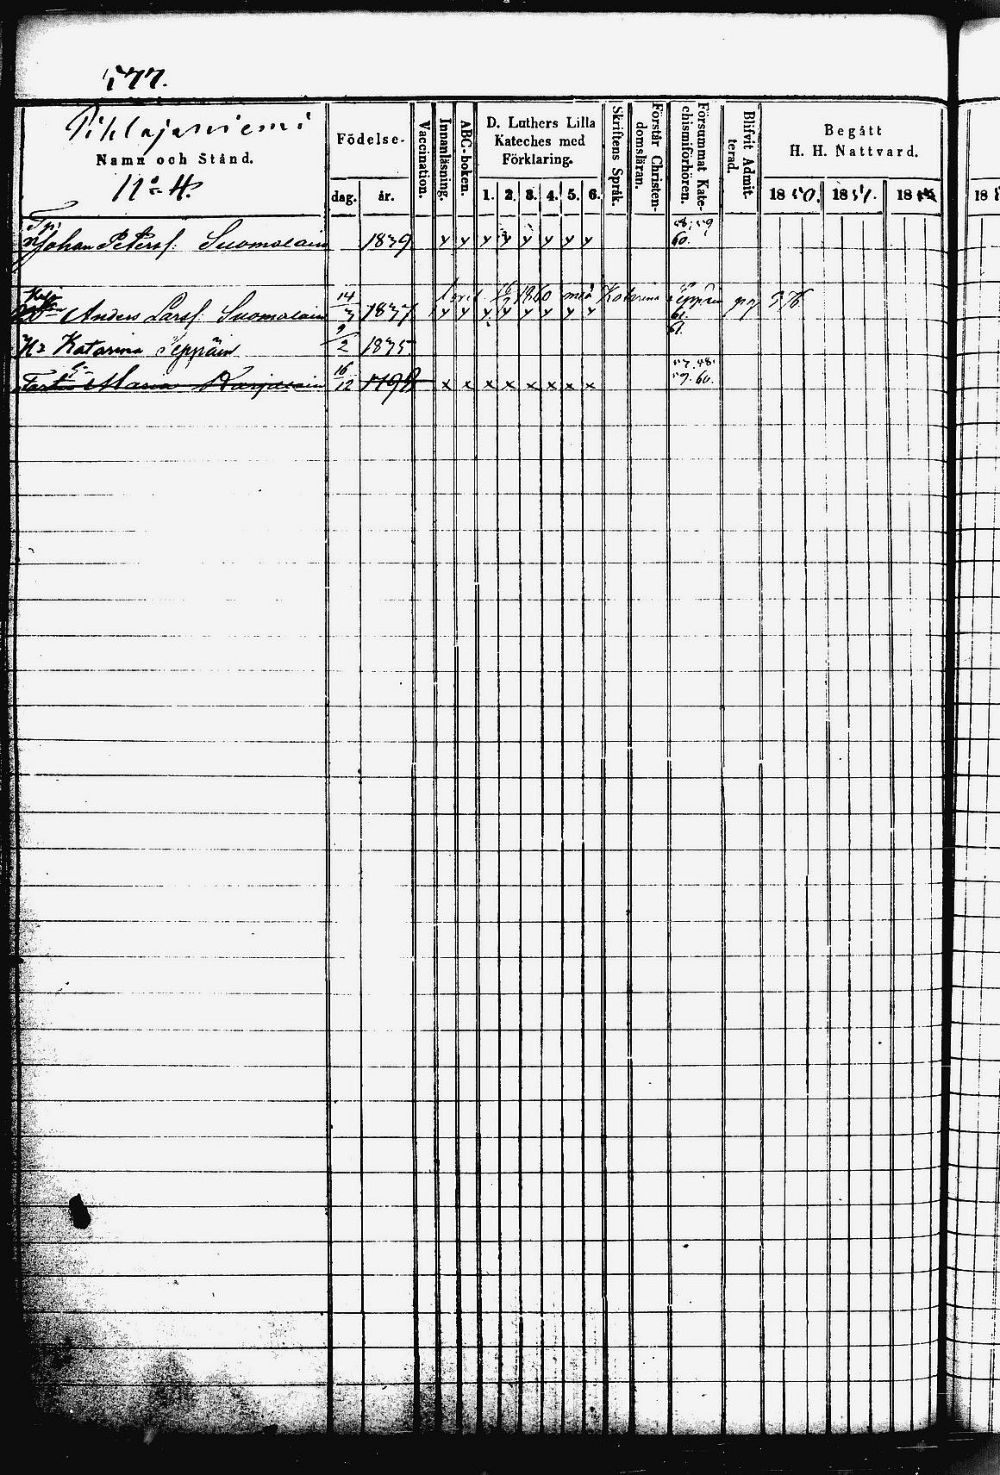 577.
Pihlajaniemi
Namn och Stånd.
N:o 4.
Födelse-
dag. år.
Vaccination.
Innanläsning.
ABC-boken.
D. Luthers Lilla
Kateches med
Förklaring.
1. 2. 3. 4. 5. 6.
Skriftens Språk.
Förstår Christen-
domsläran.
Försummat Kate-
chismiförhören.
Blifvit Admit-
terad.
Begått
H. H. Nattvard.
1850. 1851. 18
18
Johan Peterss. Suomolain 1839 y y y y y y y y 58. 59
60.
14 1860 med Katarina Seppäin
Anders Larss. Suomolain 3 1837 y y y y y y y y 61.
H:u Katarina Seppäin 9/2 1835.
Maria Karjalain 16/12 1798 x x x x x x x x 57. 58.
59. 60.